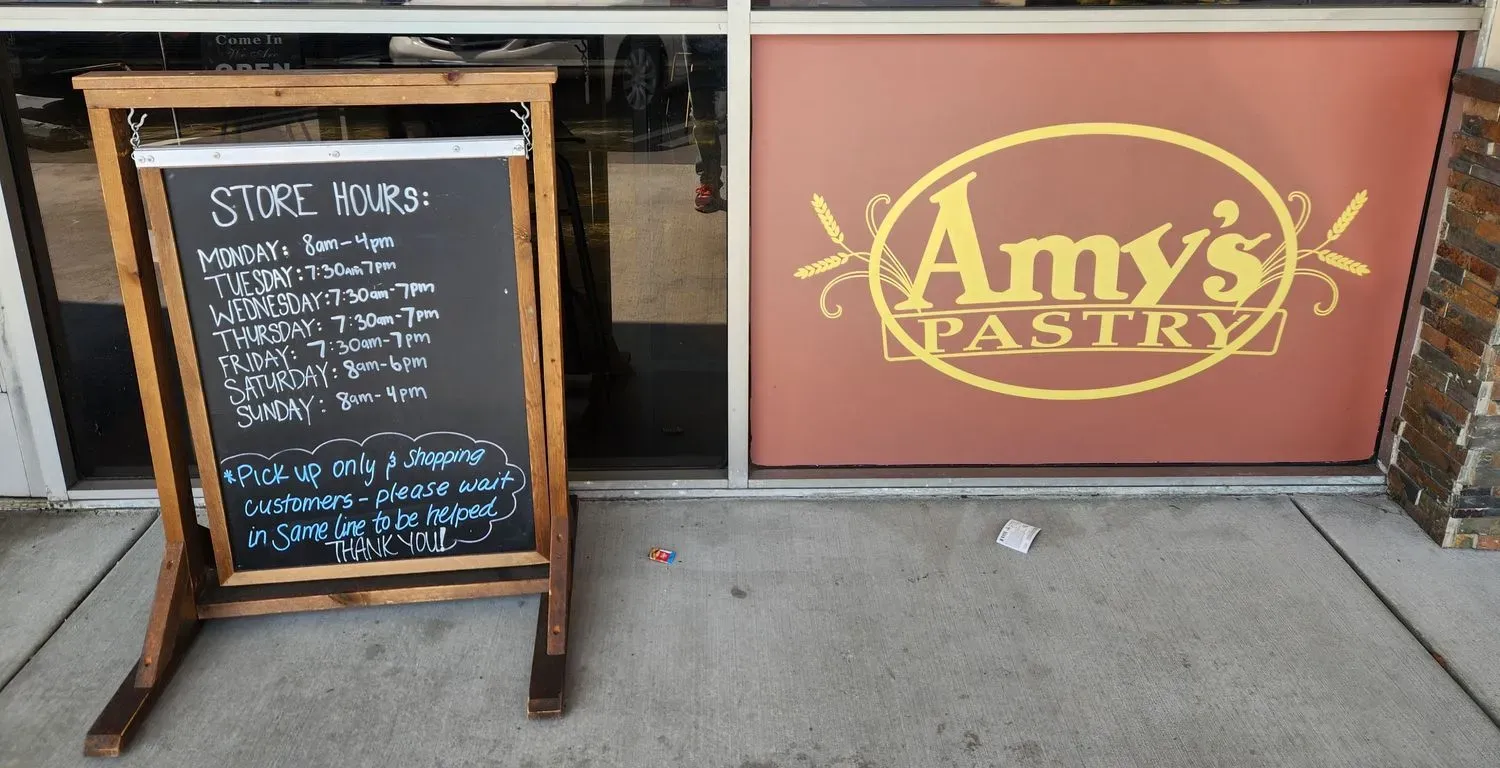 Come In
We Are
OPEN
STORE HOURS:
MONDAY: 8am-4pm
TUESDAY: 7:30am-7pm
WEDNESDAY: 7:30am-7pm
THURSDAY: 7:30am-7pm
FRIDAY: 7:30am-7pm
SATURDAY: 8am-6pm
SUNDAY: 8am-4pm
*Pick up only & shopping
customers - please wait
in same line to be helped
THANK YOU!
Amy's
PASTRY